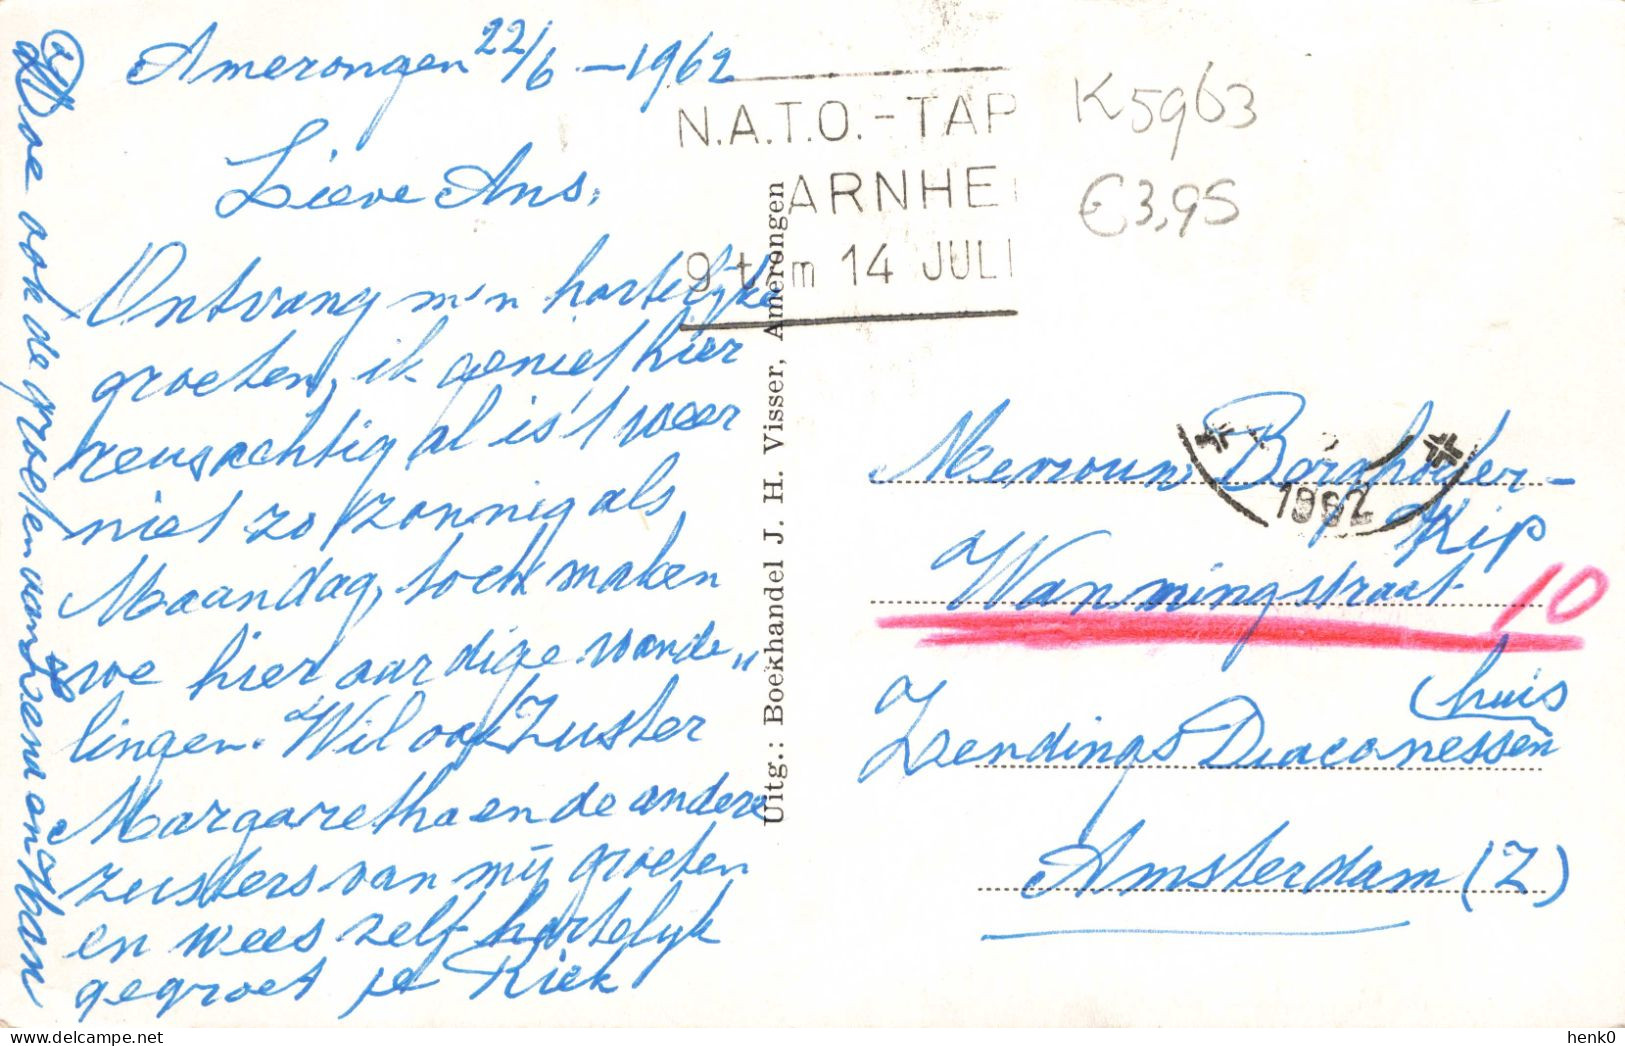 Amerongen 22/6 - 1962
Lieve Ans,
Ontvang m'n hartelijke
groeten, ik geniet hier
reusachtig al is 't weer
niet zo zonnig als
Maandag, toch maken
we hier aardige wande„
lingen. Wil ook Zuster
Margaretha en de andere
zusters van mij groeten
en wees zelf hartelijk
gegroet Riek
Doe ook de groeten van en Han
Uitg.: Boekhandel J. H. Visser, Amerongen
N.A.T.O.-TAP
ARNHE
9 t m 14 JULI
K5963
€3,95
1962
Mevrouw
Kip
Wanningstraat 10
huis
Zendings Diaconessen
Amsterdam (Z)
henk0